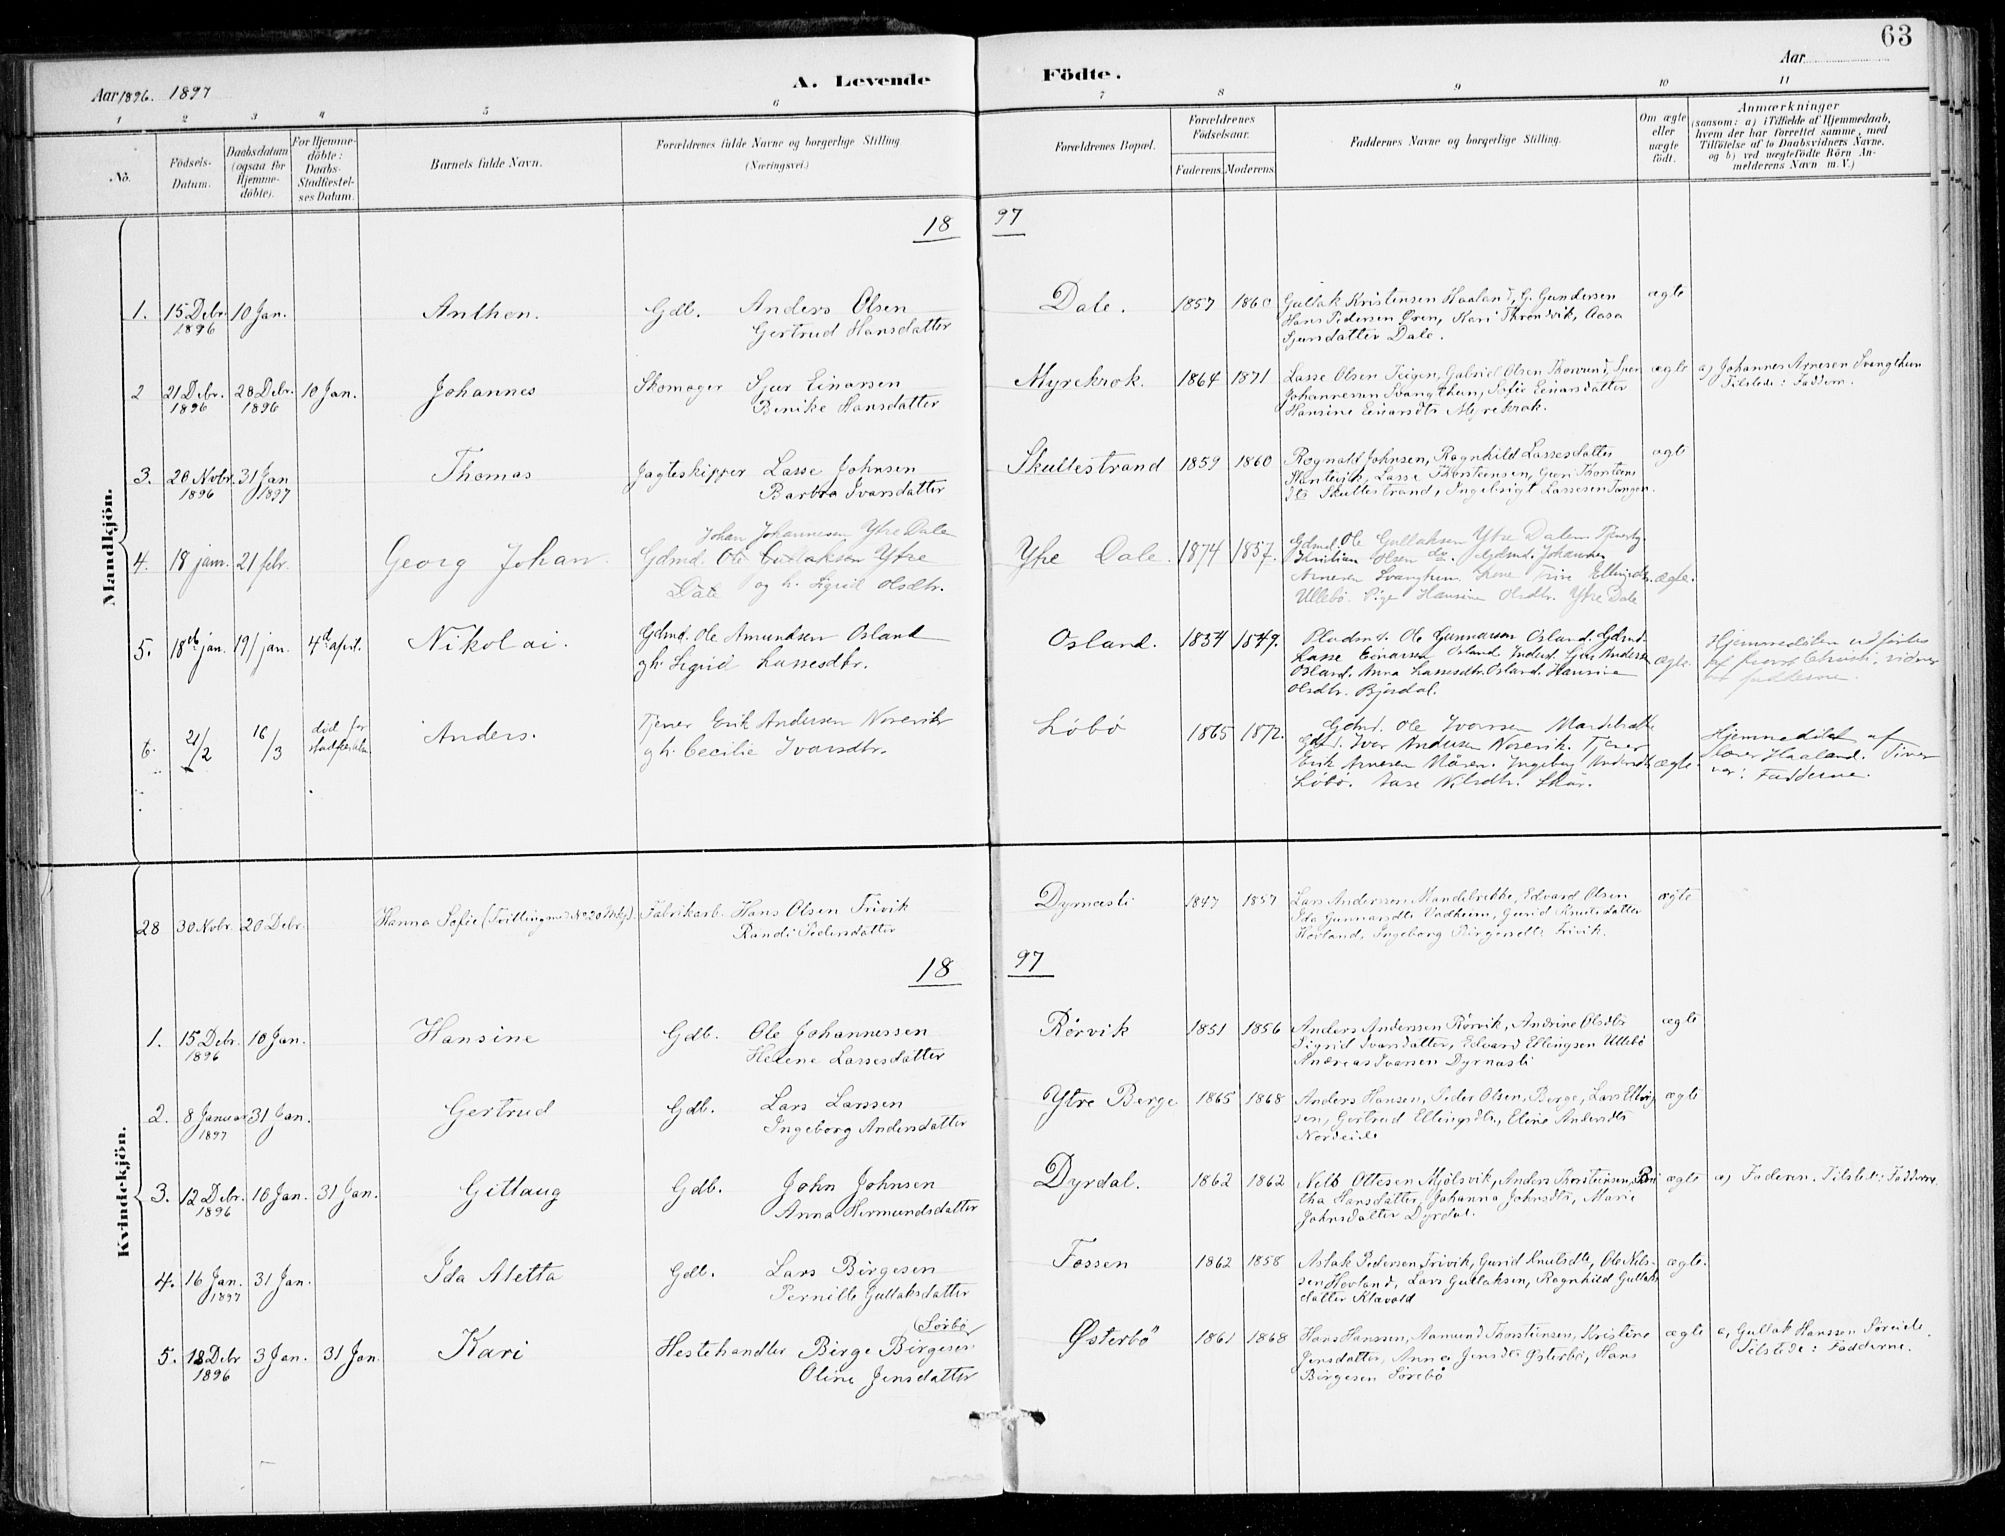 63
Aar 1896. 1897
A. Levende Födte.
Aar
1 2 3 4 5 6 7 8 9 10 11
No.
Födsels-Datum.
Daabsdatum (ogsaa for Hjemme-döbte).
For Hjemme-döbte: Daabs-Stadfæstel-ses Datum.
Barnets fulde Navn.
Forældrenes fulde Navne og borgerlige Stilling (Næringsvei.)
Forældrenes Bopæl.
Forældrenes Födselsaar.
Faderens. Moderens.
Faddernes Navne og borgerlige Stilling.
Om ægte eller uægte födt.
Anmærkninger
(saasom: a) i Tilfælde af Hjemmedaab, hvem der har forrettet samme, med Tilföielse af to Daabsvidners Navne, og b) ved uægtefödte Börn An-melderens Navn m. V.)
Mandkjön.
18 97
1. 15 Debr. 1896 10 Jan. Anthon. Gdb. Anders Olsen
Gertrud Hansdatter
Dale. 1857 1860 Gullak Kristensen Haaland, G. Gundersen
Hans Pedersen Øren, Kari Throndvik, Aasa
Sjursdatter Dale.
ægte
2 21 Debr. 1896 28 Debr. 1896 10 Jan. Johannes Skomager Sjur Einarsen
Benike Hansdatter
Myrekrok. 1864 1871 Lasse Olsen Teigen, Gabriel Olsen
Johannesen Svangthun, Sofie Einarsdatter
Hansine Einarsdtr Myrekrok.
ægte a) Johannes Arnesen Svangthun
Tilstede: Faddern.
3. 20 Novbr. 1896 31 Jan 1897 Thomas Jagteskipper Lasse Johnsen
Barbra Ivarsdatter
Skullestrand 1859 1860 Rognald Johnsen, Ragnhild Lassesdatter
Lasse Thorstensen,
Skullestrand, Ingebrigt Lassesen Tangen.
ægte
4. 18 janr. 21 febr. Georg Johan. Johan Johannesen Ytre Dale
Gdmd. Ole Gullaksen Ytre
Dale og h. Sigrid Olsdtr.
Ytre Dale. 1874 1857. Gdmd. Ole Gullaksen Ytre Dale.
Olsen do. Gdmd. Johannes
Arnesen Svangthun. Ellingsdtr.
Ullebö. Pige Hansine Olsdtr. Ytre Dale
ægte.
5. 18de jan. 19/ jan. 4de april. Nikolai. Gdmd. Ole Amundsen Osland
g h. Sigrid Lassesdtr.
Osland. 1834 1849. Pladsmd. Ole Gunnarsen Osland. Gdmd.
Lasse Einarsen Osland. Sjur Andersen
Osland. Anna Lassesdtr. Osland. Hansine
Olsdtr. Bjordal.
ægte. Hjemmedåben udförtes
af provst Christi, vidner
fadderne.
6. 21/2 16/3 död för stadfæstelsen Anders. Tjener Erik Andersen Norevik
g h. Cecilie Ivarsdtr.
Löbö 1865 1872. Gdmd. Ole Ivarsen
Gdmd. Ivar Andersen Norevik. Tjener
Erik Arnesen Ingeborg Andersdtr.
Löbö. Aase Nilsdtr. Skår.
ægte. Hjemmedöbt af
lærer Haaland.
var: Fadderne.
Kvindekjön.
28 30 Novbr. 20 Debr. Hanna Sofie (Tvilling med No 20 Mdkj). Fabrikarb. Hans Olsen Trivik
Randi Pedersdatter
Dyrnesli 1847 1857 Lars Anderssen Mandebrekke, Edvard Olsen
Ida Gunnarsdtr Vadheim, Gurid Knutsdatter
Hovland, Ingeborg Birgersdtr Trivik.
ægte
18 97
1. 15 Debr. 1896 10 Jan. Hansine Gdb. Ole Johannessen
Helene Lassesdatter
Rörvik 1851 1856 Anders Anderssen Rörvik, Andrine Olsdtr
Sigrid Ivarsdatter, Edvard Ellingsen Ullebö
Andreas Ivarsen Dyrnesli
ægte
2. 8 Januar 1897 31 Jan. Gertrud Gdb. Lars Larssen
Ingeborg Andersdatter
Ytre Berge 1865 1868 Anders Hansen, Peder Olsen, Berge, Lars Elling
sen, Gertrud Ellingsdtr, Eline Andersdtr
Nordeide
ægte
3. 12 Debr. 1896 16 Jan. 31 Jan. Gittaug Gdb. John Johnsen
Anna Hermundsdatter
Dyrdal. 1862 1862 Nels Ottesen Mjölsvik, Anders Thorstensen, Bri
tha Hansdatter, Johanna Johnsdtr, Marie
Johnsdatter Dyrdal.
ægte a) Faderen. Tilstede: Fadderne.
4. 16 Jan. 1897 31 Jan. Ida Aletta Gdb. Lars Birgesen
Pernille Gullaksdatter
Fossen 1862 1858 Aslak Pedersen Trivik, Gurid Knutsdtr, Ole Nils-
sen Hovland, Lars Gullaksen, Ragnhild Gullaks
datter Klævold
ægte.
5. 18 Debr 1896 3 Jan. 31 Jan. Kari Hestehandler Birge Birgesen (Sörbö)
Oline Jensdatter
Østerbö 1861 1868 Hans Hanssen, Aamund Thorstensen, Kristine
Jensdatter, Anna Jensdtr Østerbö, Hans
Birgesen Sörebö
ægte a) Gullak Hanssen Söreide.
Tilstede: Fadderne.